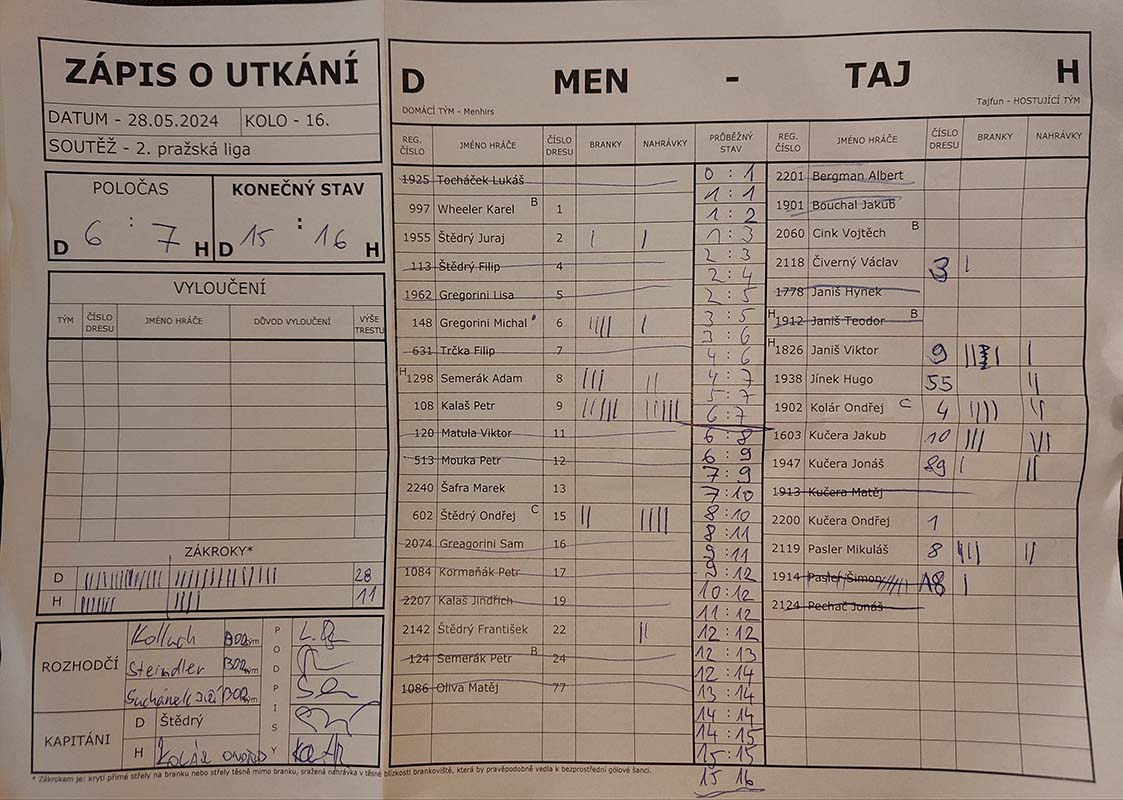 ZÁPIS O UTKÁNÍ
DATUM - 28.05.2024 KOLO - 16.
SOUTĚŽ - 2. pražská liga
POLOČAS KONEČNÝ STAV
D 6 : 7 H D 15 : 16 H
VYLOUČENÍ
TÝM ČÍSLO DRESU JMÉNO HRÁČE DŮVOD VYLOUČENÍ VÝŠE TRESTU
ZÁKROKY*
D 28
H 11
ROZHODČÍ
Kolluch
Steindler
Suchánek Jiří
PODPISY
KAPITÁNI
D Štědrý
H Kolář Ondřej
D MEN - TAJ H
DOMÁCÍ TÝM - Menhirs Tajfun - HOSTUJÍCÍ TÝM
REG. ČÍSLO JMÉNO HRÁČE ČÍSLO DRESU BRANKY NAHRÁVKY PRŮBĚŽNÝ STAV REG. ČÍSLO JMÉNO HRÁČE ČÍSLO DRESU BRANKY NAHRÁVKY
1925 Tocháček Lukáš
997 Wheeler Karel B 1
1955 Štědrý Juraj 2 | |
113 Štědrý Filip 4
1962 Gregorini Lisa 5
148 Gregorini Michal 6 |||| |
631 Trčka Filip 7
H 1298 Semerák Adam 8 ||| ||
108 Kalaš Petr 9
120 Matula Viktor 11
513 Mouka Petr 12
2240 Šafra Marek 13
602 Štědrý Ondřej C 15 || ||||
2074 Greagorini Sam 16
1084 Kormaňák Petr 17
2207 Kalaš Jindřich 19
2142 Štědrý František 22 ||
124 Semerák Petr B 24
1086 Oliva Matěj 77
0 : 1
1 : 1
1 : 2
1 : 3
2 : 3
2 : 4
2 : 5
3 : 5
3 : 6
4 : 6
4 : 7
5 : 7
6 : 7
6 : 8
6 : 9
7 : 9
7 : 10
8 : 10
8 : 11
9 : 11
9 : 12
10 : 12
11 : 12
12 : 12
12 : 13
12 : 14
13 : 14
14 : 14
14 : 15
15 : 15
15 16
2201 Bergman Albert
1901 Bouchal Jakub
2060 Cink Vojtěch B
2118 Čiverný Václav 3 |
1778 Janiš Hynek
H 1912 Janiš Teodor B
H 1826 Janiš Viktor 9
1938 Jínek Hugo 55 ||
1902 Kolár Ondřej C 4 |||| ||
1603 Kučera Jakub 10 ||| |||
1947 Kučera Jonáš 89 | ||
1913 Kučera Matěj
2200 Kučera Ondřej 1
2119 Pasler Mikuláš 8 ||| ||
1914 Pasler Šimon 18 |
2124 Pechač Jonáš
* Zákrokem je: krytí přímé střely na branku nebo střely těsně mimo branku, sražená nahrávka v těsné blízkosti brankoviště, která by pravěpodobně vedla k bezprostřední gólové šanci.